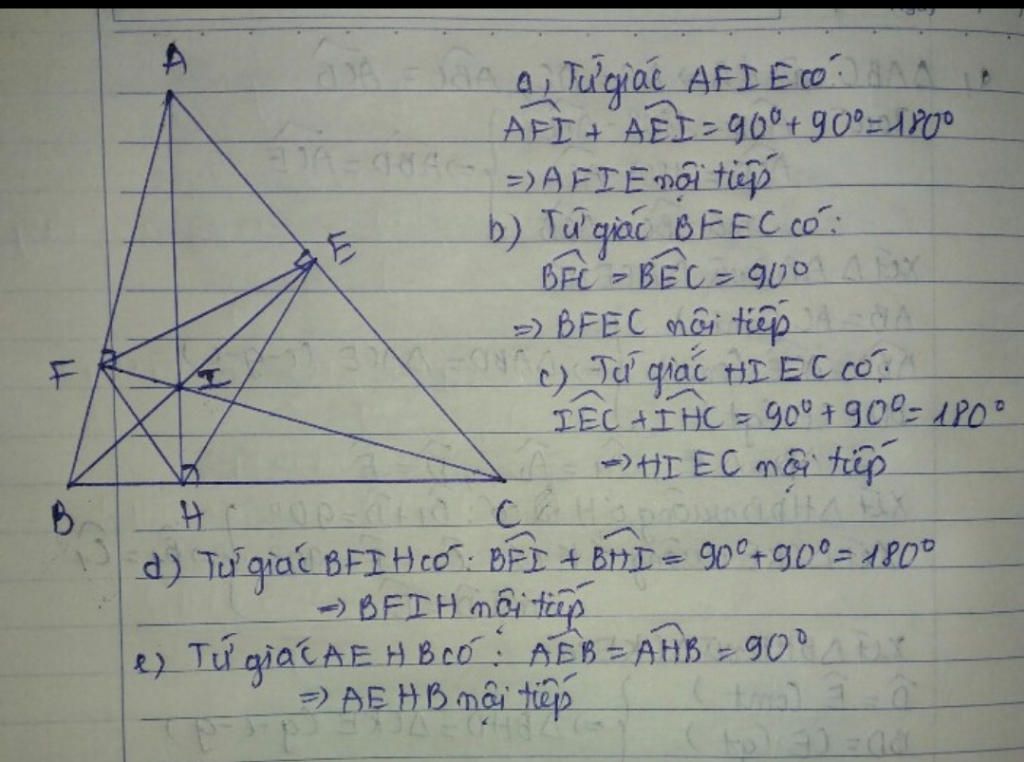 A
a, Tứ giác AFIE có:
AFI + AEI = 90° + 90° = 180°
=> AFIE nội tiếp
b) Tứ giác BFEC có:
BFC = BEC = 90°
=> BFEC nội tiếp
c) Tứ giác HIEC có:
IEC + IHC = 90° + 90° = 180°
=> HIEC nội tiếp
E
F
I
B
H
C
d) Tứ giác BFIH có: BFI + BHI = 90° + 90° = 180°
=> BFIH nội tiếp
e) Tứ giác AEHB có: AEB = AHB = 90°
=> AEHB nội tiếp